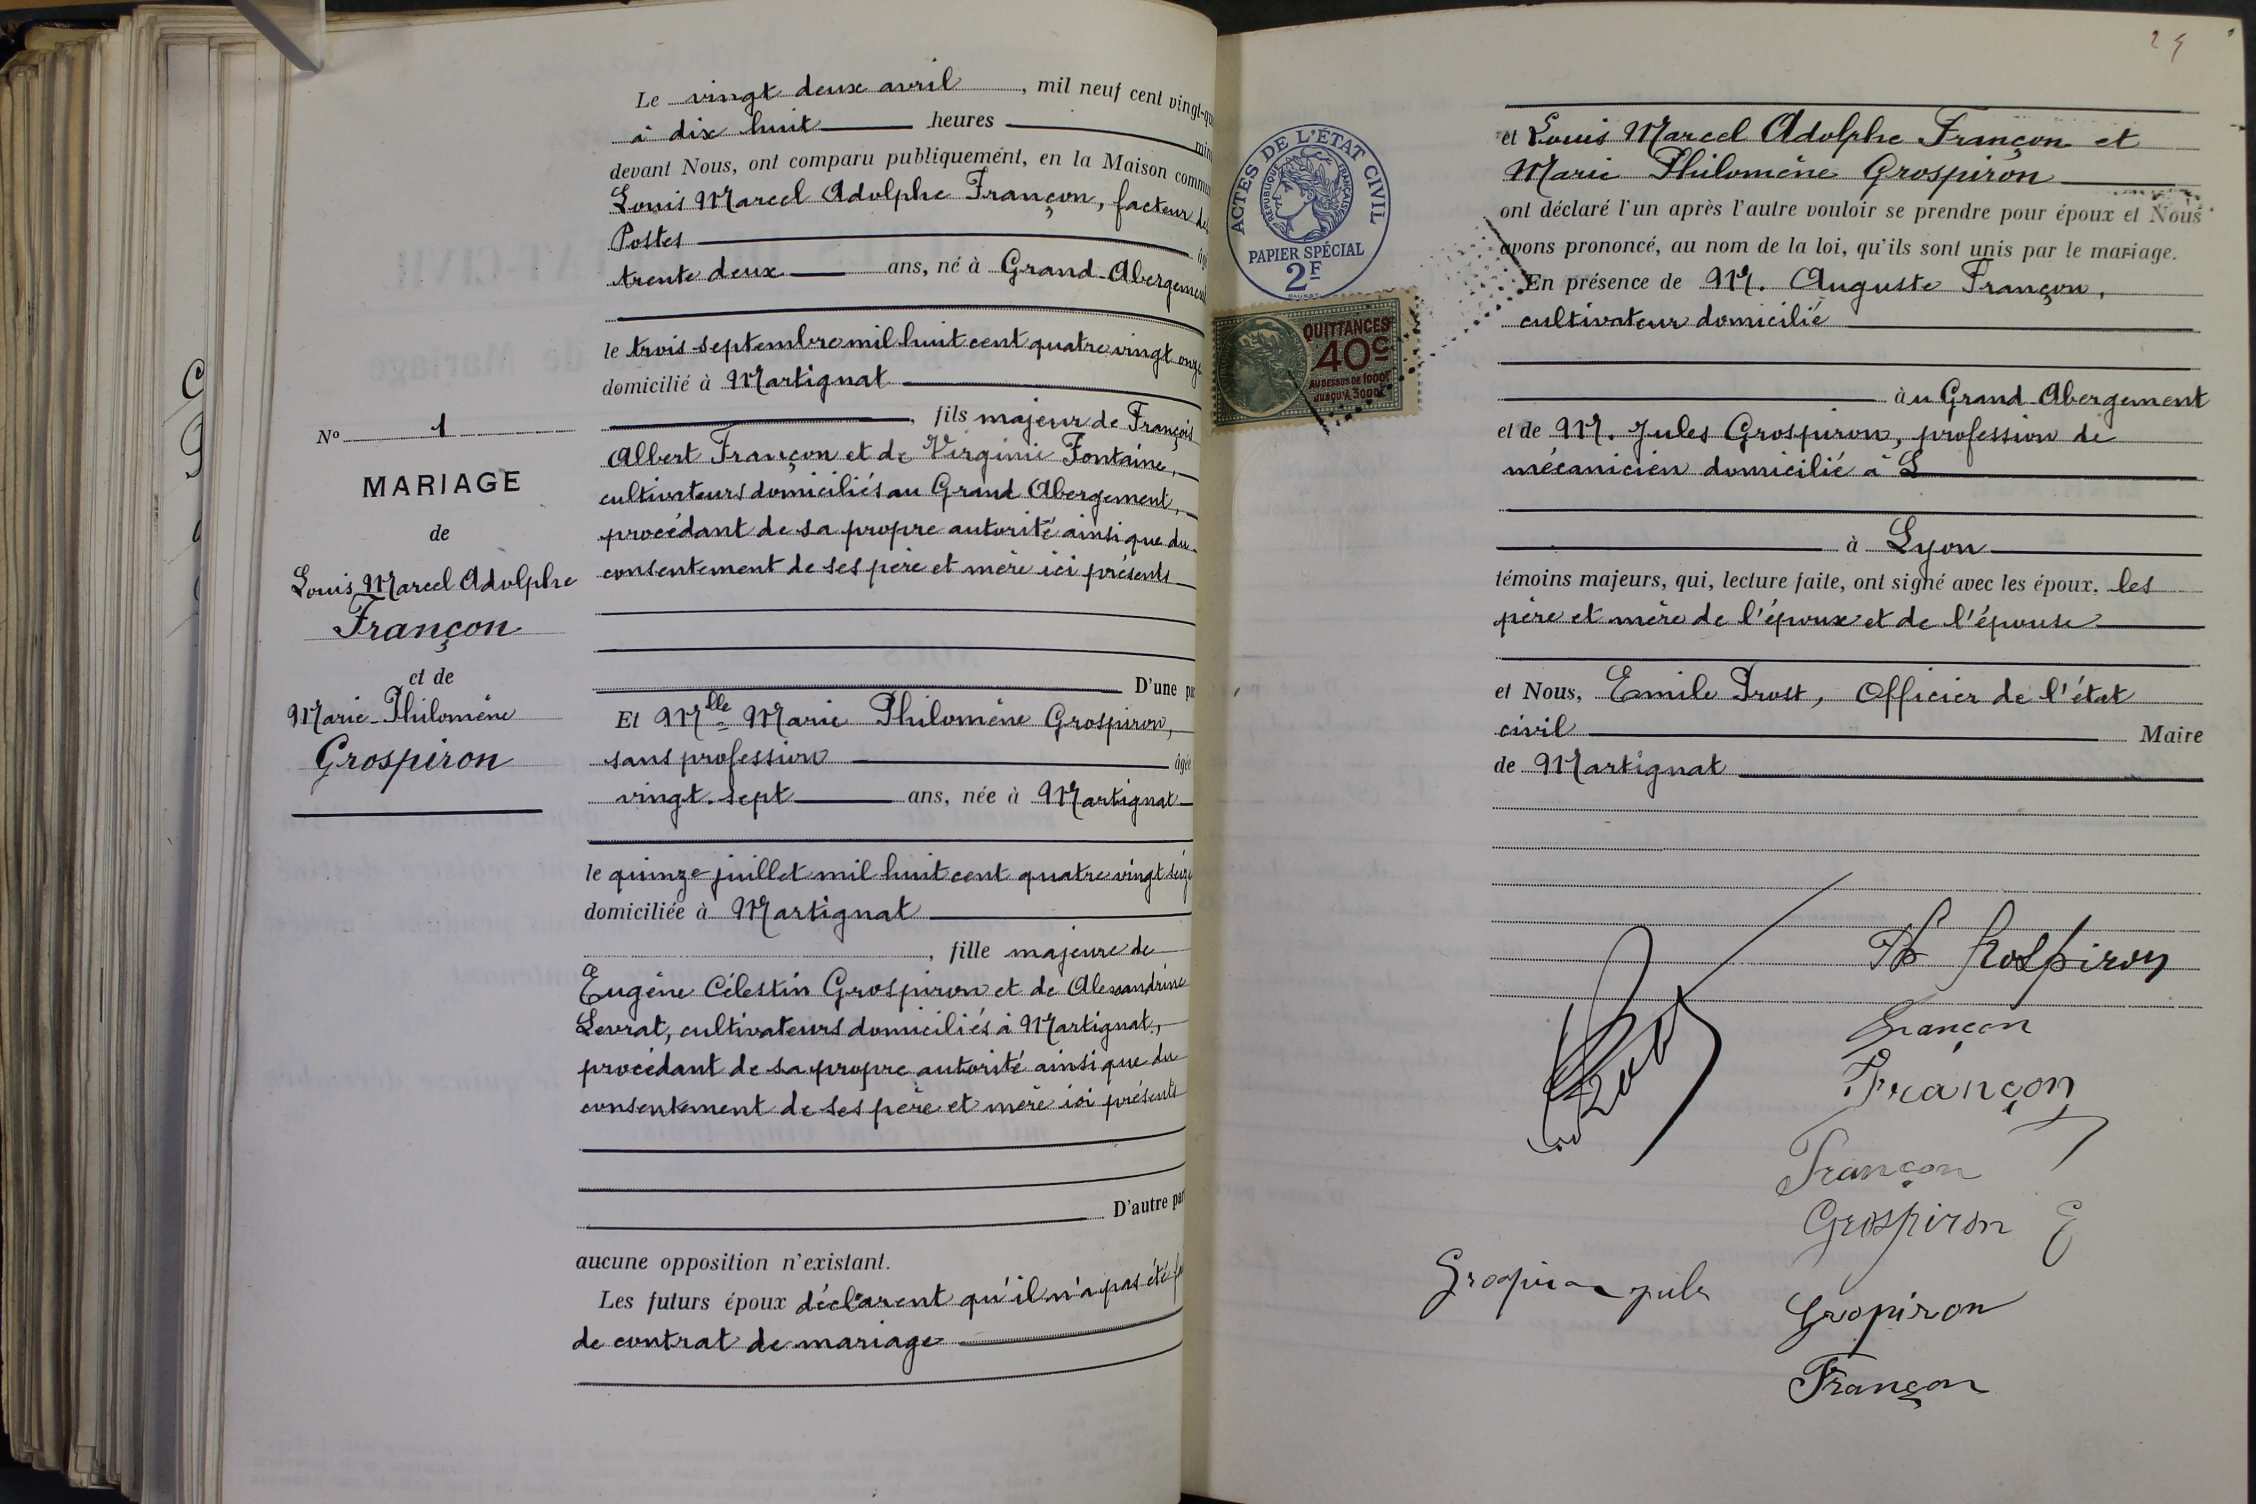 Le vingt deux avril, mil neuf cent vingt-qu
à dix huit heures
devant Nous, ont comparu publiquement, en la Maison commu
Louis Marcel Adolphe Françon, facteur des
Postes
trente deux ans, né à Grand-Abergement
le trois septembre mil huit cent quatre vingt onze
domicilié à Martignat
, fils majeur de François
Albert Françon et de Virginie Fontaine,
cultivateurs domiciliés au Grand Abergement,
procédant de sa propre autorité ainsi que du
consentement de ses père et mère ici présents
D'une pa
Et Mlle Marie Philomène Grospiron,
sans profession âgée
vingt-sept ans, née à Martignat
le quinze juillet mil huit cent quatre vingt seize
domiciliée à Martignat
, fille majeure de
Eugène Célestin Grospiron et de Alexandrine
Levrat, cultivateurs domiciliés à Martignat,
procédant de sa propre autorité ainsi que du
consentement de ses père et mère ici présents
D'autre par
aucune opposition n'existant.
Les futurs époux déclarent qu'il n'a pas été fa
de contrat de mariage
No 1
MARIAGE
de
Louis Marcel Adolphe
Françon
et de
Marie-Philomène
Grospiron
ACTES DE L'ÉTAT CIVIL
RÉPUBLIQUE FRANÇAISE
PAPIER SPÉCIAL
2F
QUITTANCES
40c
AU DESSUS DE 1000F
JUSQU'À 3000F
et Louis Marcel Adolphe Françon et
Marie Philomène Grospiron
ont déclaré l'un après l'autre vouloir se prendre pour époux et Nous
avons prononcé, au nom de la loi, qu'ils sont unis par le mariage.
En présence de Mr. Auguste Françon,
cultivateur domicilié
au Grand-Abergement
et de M. Jules Grospiron, profession de
mécanicien domicilié à L
à Lyon
témoins majeurs, qui, lecture faite, ont signé avec les époux, les
père et mère de l'époux et de l'épouse
et Nous, Emile Prost, Officier de l'état
civil Maire
de Martignat
Ph Grospiron
Françon
Françon
Françon
Grospiron E
Grospiron
Grospiron
Françon